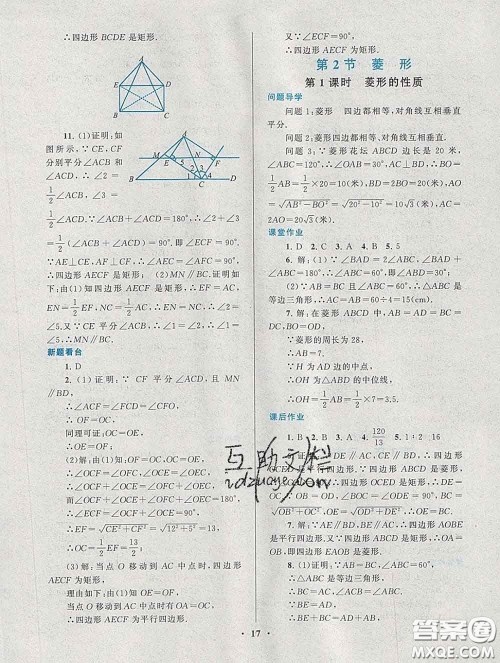 ∴四边形 BCDE 是矩形.
A
E
D
B
C
11. (1)证明:如
图所示,∵CE、CF
分别平分∠ACB 和
∠ACD,∴∠2=
1/2∠ACB,∠3=
1/2∠ACD.∵∠ACB+∠ACD=180°,∴∠2+∠3
=1/2(∠ACB+∠ACD)=90°,即∠ECF=90°.
∵AE⊥CE,AF⊥CF,∴∠AEC=∠AFC=90°.
∴四边形 AECF 是矩形; (2)MN∥BC.证明如
下:由(1)知四边形 AECF 是矩形,∴EF=AC,
EN=1/2EF,NC=1/2AC,∴EN=NC.∴∠1=
∠2.又∵CE 平分∠ACB,∴∠2=∠4.∴∠1=
∠4,∴MN∥BC.
新题看台
1. D
2. (1)证明:∵ CF 平分∠ACD,且 MN
∥BD,
∴∠ACF=∠FCD=∠CFO.
∴OF=OC.
同理可证:OC=OE.
∴OE=OF.
(2)解:由(1)知:OF=OC,OC=OE,
∴∠OCF=∠OFC,∠OCE=∠OEC.
∴∠OCF+∠OCE=∠OFC+∠OEC.
∴EF=√(CE²+CF²)=√(12²+5²)=13.
∴OC=1/2EF=13/2.
(3)解:当点 O 移动到 AC 中点时,四边形
AECF 为矩形.
理由如下:由(1)知OE=OF,
当点 O 移动到 AC 中点时,有 OA=OC,
∴四边形 AECF 为平行四边形.
又∵∠ECF=90°,
∴四边形 AECF 为矩形.
第 2 节 菱 形
第 1 课时 菱形的性质
问题导学
问题 1:菱形 四边都相等,对角线互相垂直
平分.
问题 2:菱形四边都相等,对角线互相垂直.
问题 3:∵菱形花坛 ABCD 边长是 20 米,
∠ABC=120°,∴∠OAB=30°,AC⊥BD,∴BO=
1/2AB=1/2×20=10(米),在 Rt△ABO 中,AO=
√(AB²−BO²)=√(20²−10²)=10√3(米),AC=
2AO=20√3(米).
课堂作业
1. D 2. C 3. A 4. B 5. 5
6. 解:(1)∵∠BAD=2∠ABC,∠BAD+
∠ABC=180°,∴∠ABC=60°;
(2)∵AB=BC 且∠ABC=60°,∴△ABC
是等边三角形,∴AC=AB=60÷4=15(cm).
7. 解:在菱形 ABCD 中,AB=AD=BC=
DC,BO=DO.
∵菱形的周长为 28,
∴AB=7.
∵H 为 AD 边的中点,
∴OH 为△ABD 的中位线,
∴OH=1/2AB=1/2×7=3.5.
课后作业
1. B 2. B 3. D 4. 120/13 5. 1∶2 16
∠OCE=90°.∴四边形
OCED 是矩形.
7. 解:∵AE∥BD,BE∥AC,∴四边形 AOBE
是平行四边形.∵四边形 ABCD 是菱形,∴AC⊥
BD.∴四边形 EAOB 是菱形.
8. (1)证明:∵△ABC 是等边三角形,
∴∠ABC=60°.
17
互助文档
答案圈
MXQE.COM